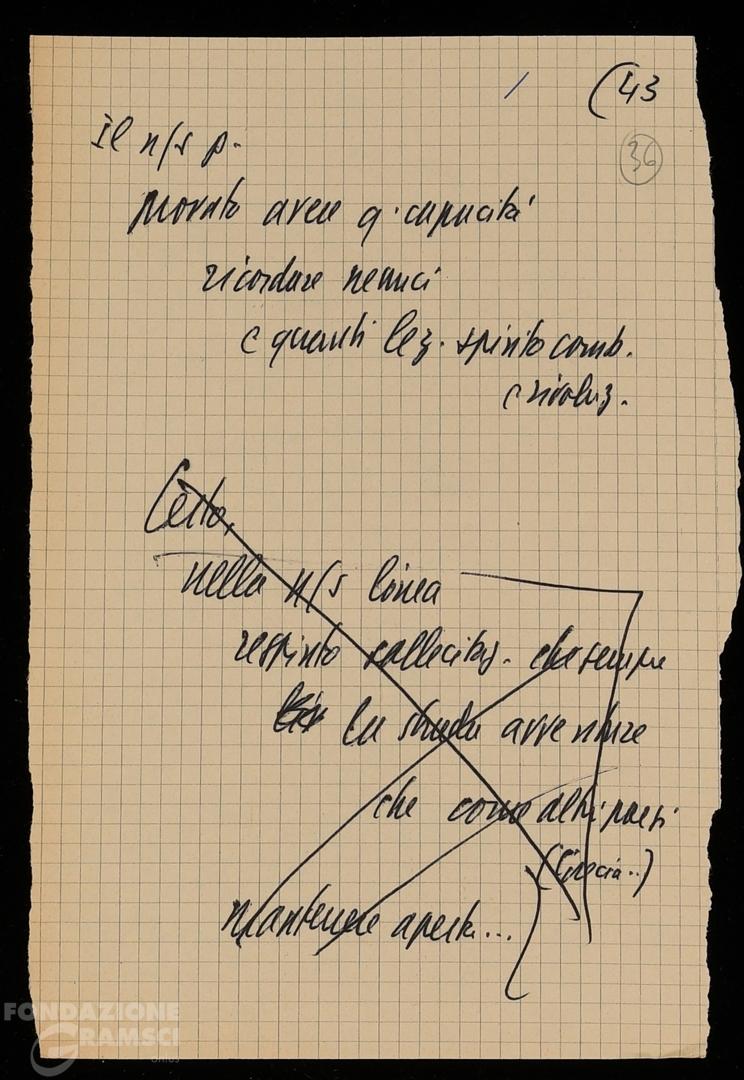 (43
36
Il n/s p.
provato avere q. capacità
ricordare nemici
e quanti lez. spirito comb.
e rivoluz.
Certo,
nella n/s linea
respinto sollecitaz. che sempre
la strada avventure
che come altri paesi
(Grecia..)
mantenere aperta...
FONDAZIONE
GRAMSCI
onlus